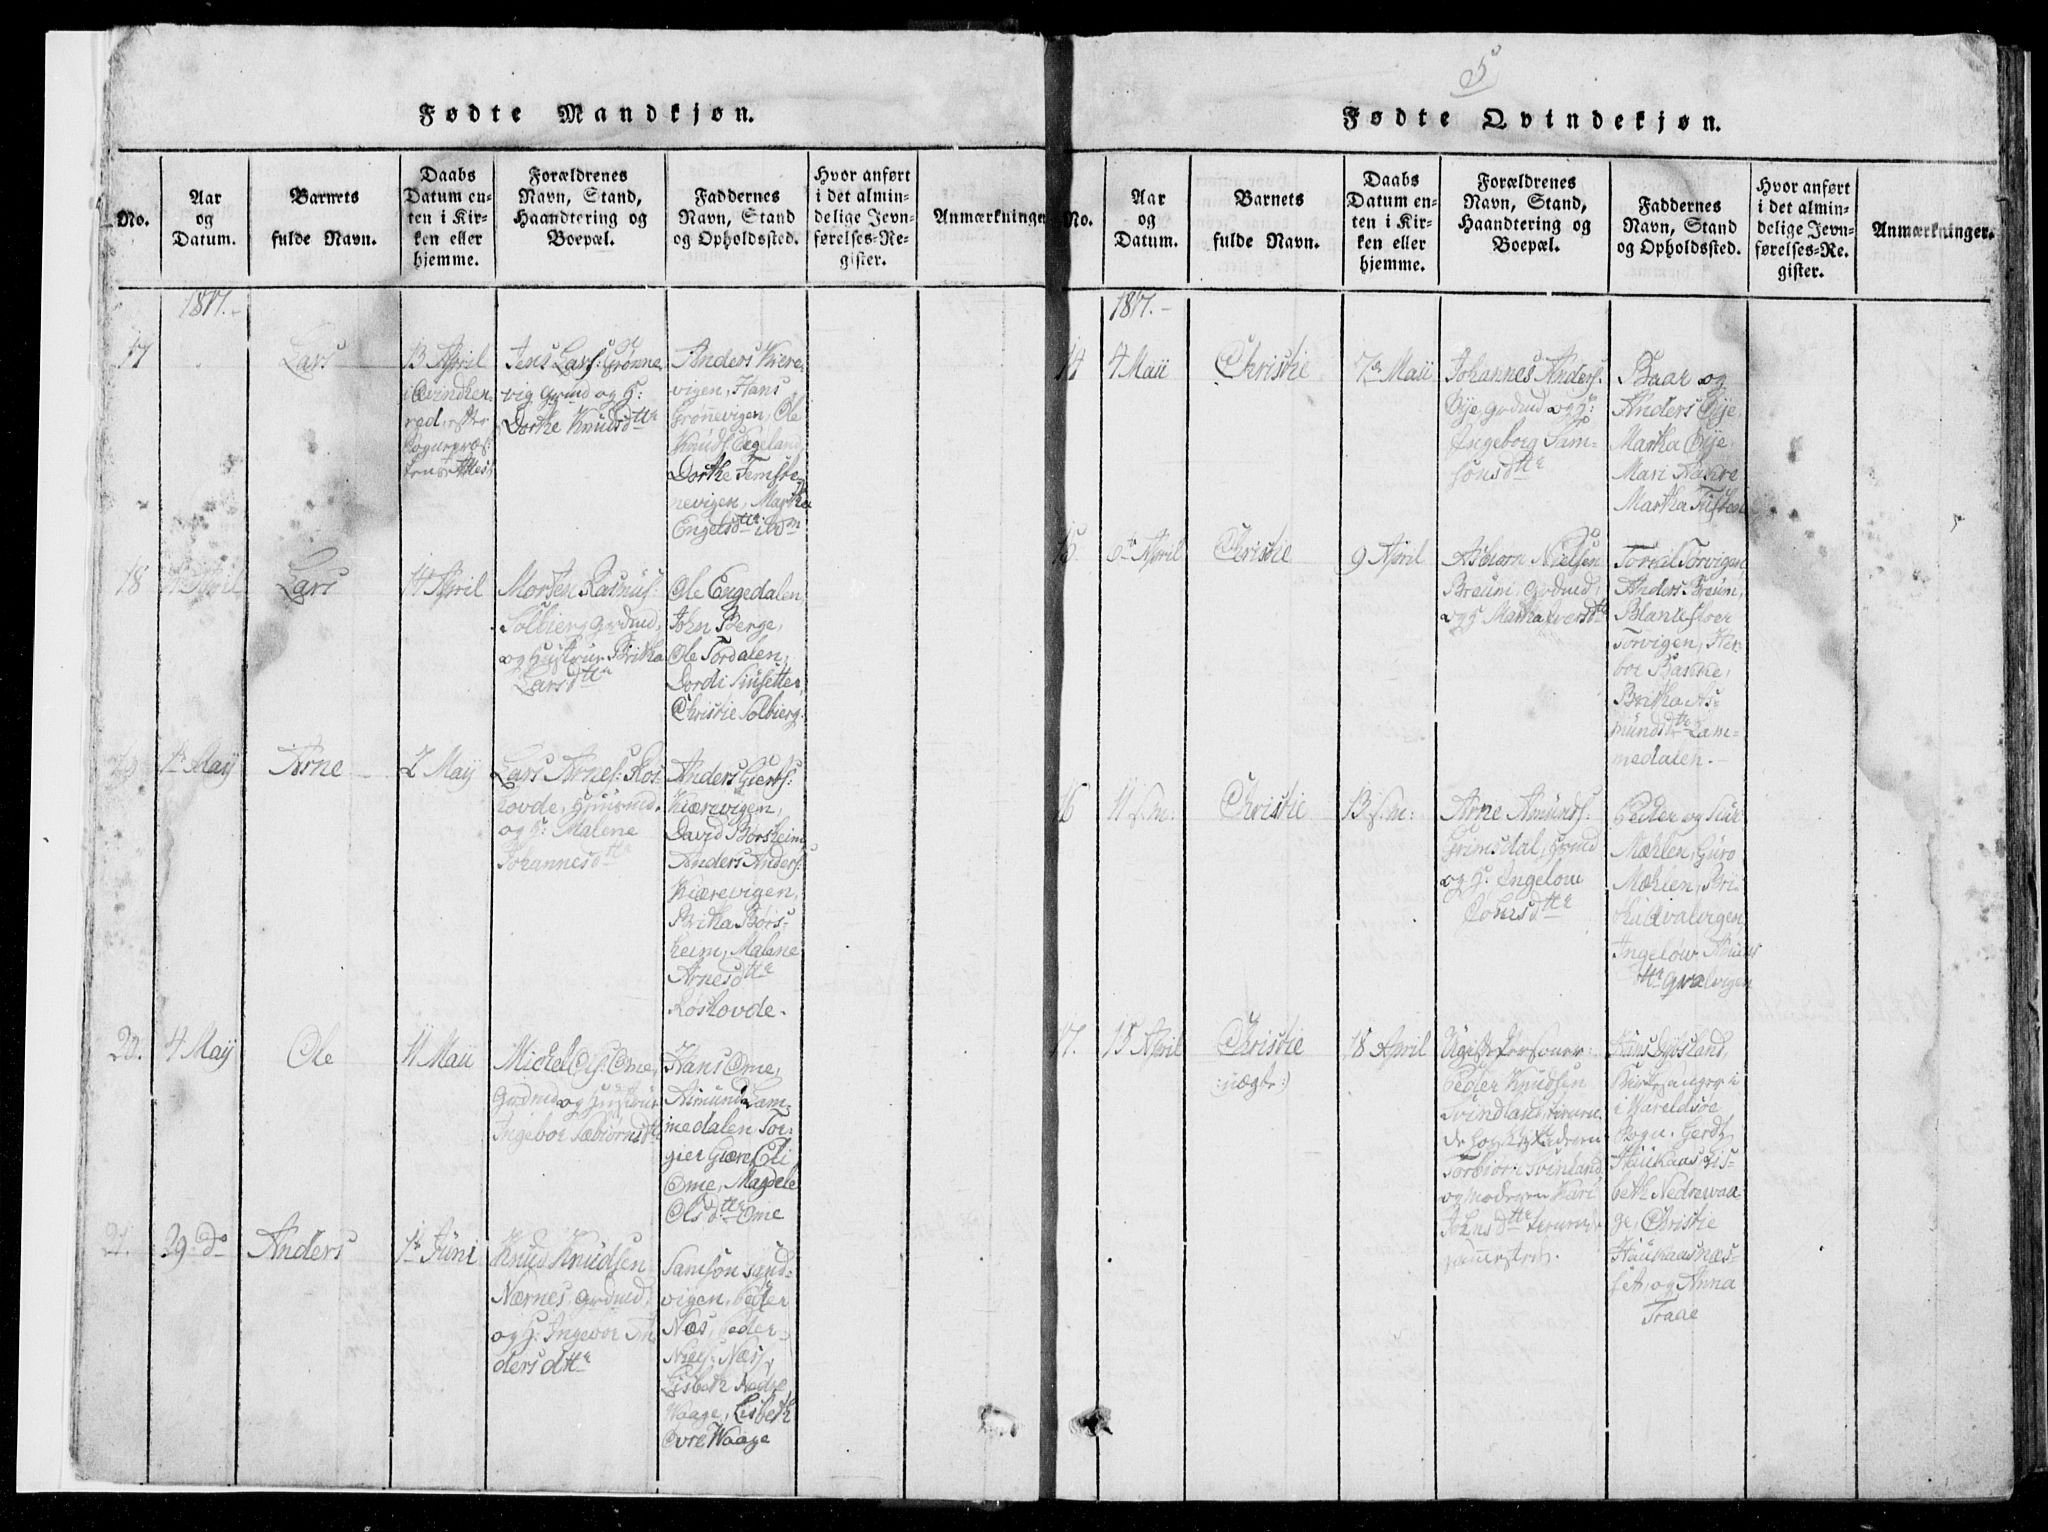 Fødte Mandkjøn.
No.
Aar
og
Datum.
Barnets
fulde Navn.
Daabs
Datum en-
ten i Kir-
ken eller
hjemme.
Forældrenes
Navn, Stand,
Haandtering og
Boepæl.
Faddernes
Navn, Stand
og Opholdssted.
Hvor anført
i det almin-
delige Jevn-
førelses-Re-
gister.
Anmærkninger
1817.-
17
Lars
13 April
Jens Lars: Grønne
vig Grmd og H:
Dorthe Knudsdtte
Anders Kiere
vigen, Hans
Grønnevigen, Ole
Knuds Egeland
Dorthe
nevigen, Martha
Engelsdtte ibdm
18
April
Lars
14 April
Morten Rasmus:
Solbierg Grdmd,
og Hustrue Britha
Larsdtte
Ole Engedalen,
John Berge,
Ole Tordalen,
Dordi
Christie Solbierg.
1te May
Arne
2 May
Lars Arnes: Ros-
kovde, Huusmd.
og H: Malene
Johannesdtte
Anders Gierts:
Kiærevigen,
David Børsheim,
Anders Anders:
Kiærevigen,
Britha Børs-
heim, Malene
Arnesdtte
Roskovde.
20.
4 May
Ole
11 Maii
Michel Ols: Ome,
Grdmd og Hustrue
Ingebor Sæbiørnsdtte
Hans Ome,
Asmund Lam-
medalen, Tor-
gier Giære, Eli
Ome, Magdele
Olsdtte Ome
21.
29. do
Anders
1te Juni
Knud Knudsen
Nærnes, Grdmd,
og H: Ingebor An
dersdtte
Samson Sand-
vigen, Peder
Næs, Peder
Niels: Næss,
Lisbeth Nedre
Waage, Lisbeth
Øvre Waage
5
Fødte Qvindekjøn.
No.
Aar
og
Datum.
Barnets
fulde Navn.
Daabs
Datum en-
ten i Kir-
ken eller
hjemme.
Forældrenes
Navn, Stand,
Haandtering og
Boepæl.
Faddernes
Navn, Stand
og Opholdssted.
Hvor anført
i det almin-
delige Jevn-
førelses-Re-
gister.
Anmærkninger.
1817.-
14
4 Maii
Christie
7de Maii
Johannes Anders:
Øije, Grdmd og H:
Ingeborg Sam-
sonsdtte
Baar og
Anders Øije,
Martha Øije,
Mari
Martha
15.
6te April
Christie
9 April
Asbiørn Nielsen
Breüm, Grdmd,
og H Martha Iversdtte
Torkel Torvigen
Anders Breüm,
Torvigen, Her-
bor
Britha As-
mundsdtte Lam-
medalen.-
16
11 s.m:
Christie
13 s.m:
Arne Amunds:
Grimsdal, Grmd
og H: Ingelov
Johnsdtte
Peder og
Mæhlen, Guro
Mæhlen, Bri-
tha Qvalvigen
Ingelov
dtte Qvalvigen
17.
15 April
Christie
:uægte:)
18 April
Ugifte Personer:
Peder Knudsen
Svindland, tienen-
de hos Faderen
Torbiørn Svinland
og Moderen Kari
Johnsdtte tienen-
de samesteds.
Hans
i
Sogn. Gerdt
Haukaas, Lis-
beth Nedrewaa
ge, Christie
Haukaasnæs-
set, og Anna
Traae